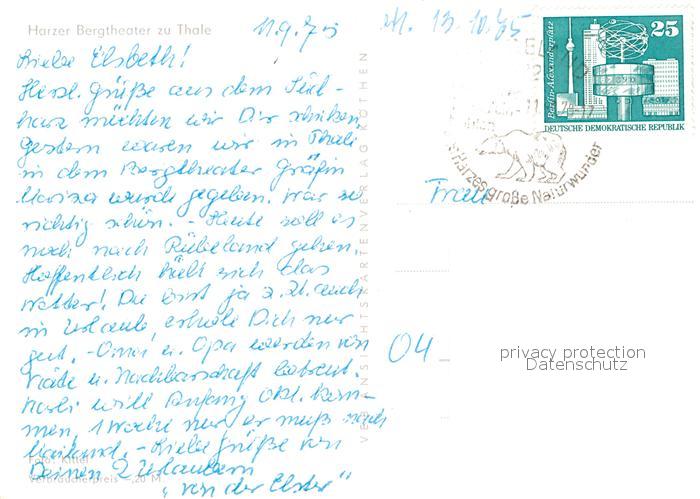 Harzer Bergtheater zu Thale
11.9.75
Liebe Elsbeth!
Herzl. Grüße aus dem Süd-
harz möchten wir Dir schicken,
gestern waren wir in Thale
in dem Bergtheater Gräfin
Mariza wurde gegeben. War
richtig schön. - Heute soll es
noch nach Rübeland gehen.
Hoffentlich hält sich das
Wetter! Du bist ja z. Zt. auch
im Urlaub, erhole Dich nur
gut. - Oma u. Opa werden von
Käte u. Nachbarschaft betreut.
Karli will Anfang Okt. kom-
men, 1 Woche nur er muß nach
Mailand. - Liebe Grüße von
Deinen 2 Urlaubern
"von der Elster"
Foto: Kittel
Verbraucherpreis -,20 M
VEB ANSICHTSKARTENVERLAG KÖTHEN
13.10.65
25
Berlin-Alexanderplatz
DEUTSCHE DEMOKRATISCHE REPUBLIK
Harzes große Naturwunder
Frau
04
privacy protection
Datenschutz